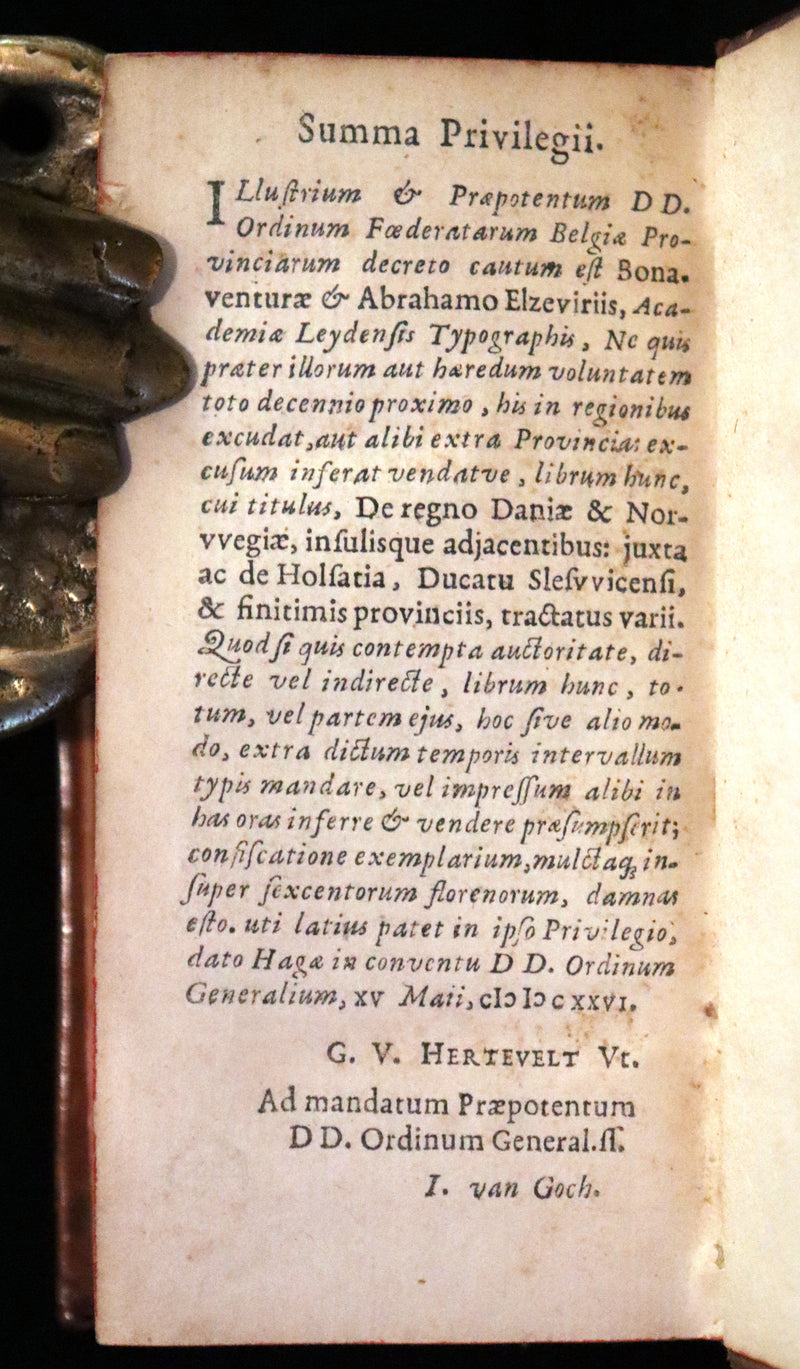 Summa Privilegii.
ILluſtrium & Præpotentum D D.
Ordinum Fœderatarum Belgiæ Pro-
vinciarum decreto cautum eſt Bona-
venturæ & Abrahamo Elzeviriis, Aca-
demiæ Leydenſis Typographis, Ne quis
præter illorum aut hæredum voluntatem
toto decennio proximo, his in regionibus
excudat, aut alibi extra Provincias ex-
cuſum inferat vendatve, librum hunc,
cui titulus, De regno Daniæ & Nor-
vvegiæ, inſulisque adjacentibus: juxta
ac de Holſatia, Ducatu Sleſvvicenſi,
& finitimis provinciis, tractatus varii.
Quod ſi quis contempta auctoritate, di-
recte vel indirecte, librum hunc, to-
tum, vel partem ejus, hoc ſive alio mo-
do, extra dictum temporis intervallum
typis mandare, vel impreſſum alibi in
has oras inferre & vendere præſumpſerit;
confiſcatione exemplarium, mulctaq; in-
ſuper ſexcentorum florenorum, damnas
eſto. uti latius patet in ipſo Privilegio,
dato Hagæ in conventu D D. Ordinum
Generalium, xv Maii, cIↄ Iↄ c xxvi.
G. V. Hertevelt Vt.
Ad mandatum Præpotentum
D D. Ordinum General.ſſ.
I. van Goch.